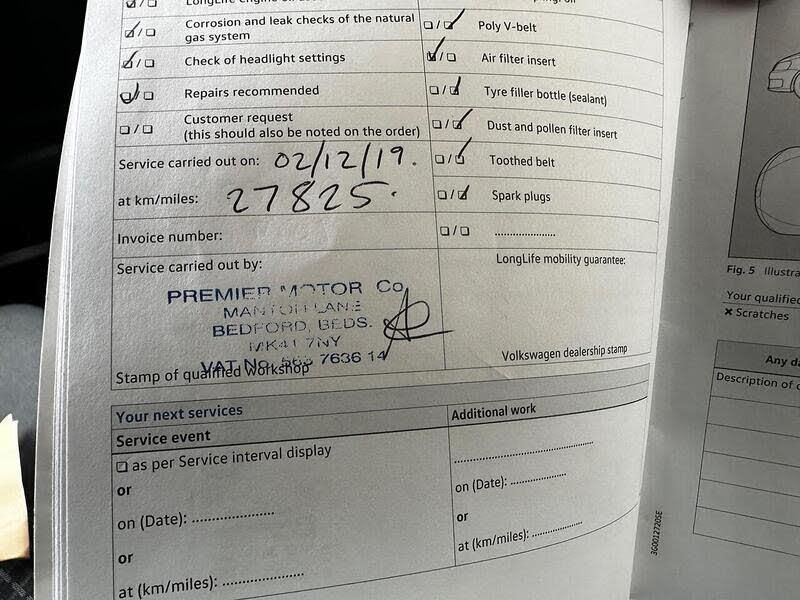 Corrosion and leak checks of the natural
gas system
Check of headlight settings
Repairs recommended
Customer request
(this should also be noted on the order)
Service carried out on: 02/12/19.
at km/miles: 27825.
Invoice number:
Service carried out by:
PREMIER MOTOR Co
MANTON LANE
BEDFORD, BEDS.
MK41 7NY
VAT No 7636 14
Stamp of qualified workshop
Poly V-belt
Air filter insert
Tyre filler bottle (sealant)
Dust and pollen filter insert
Toothed belt
Spark plugs
....................
LongLife mobility guarantee:
Volkswagen dealership stamp
Your next services
Service event
as per Service interval display
or
on (Date): ....................
or
at (km/miles): ....................
Additional work
....................
on (Date): ....................
or
at (km/miles): ....................
3G0012720SE
Fig. 5 Illustra
Your qualified
× Scratches
Any da
Description of